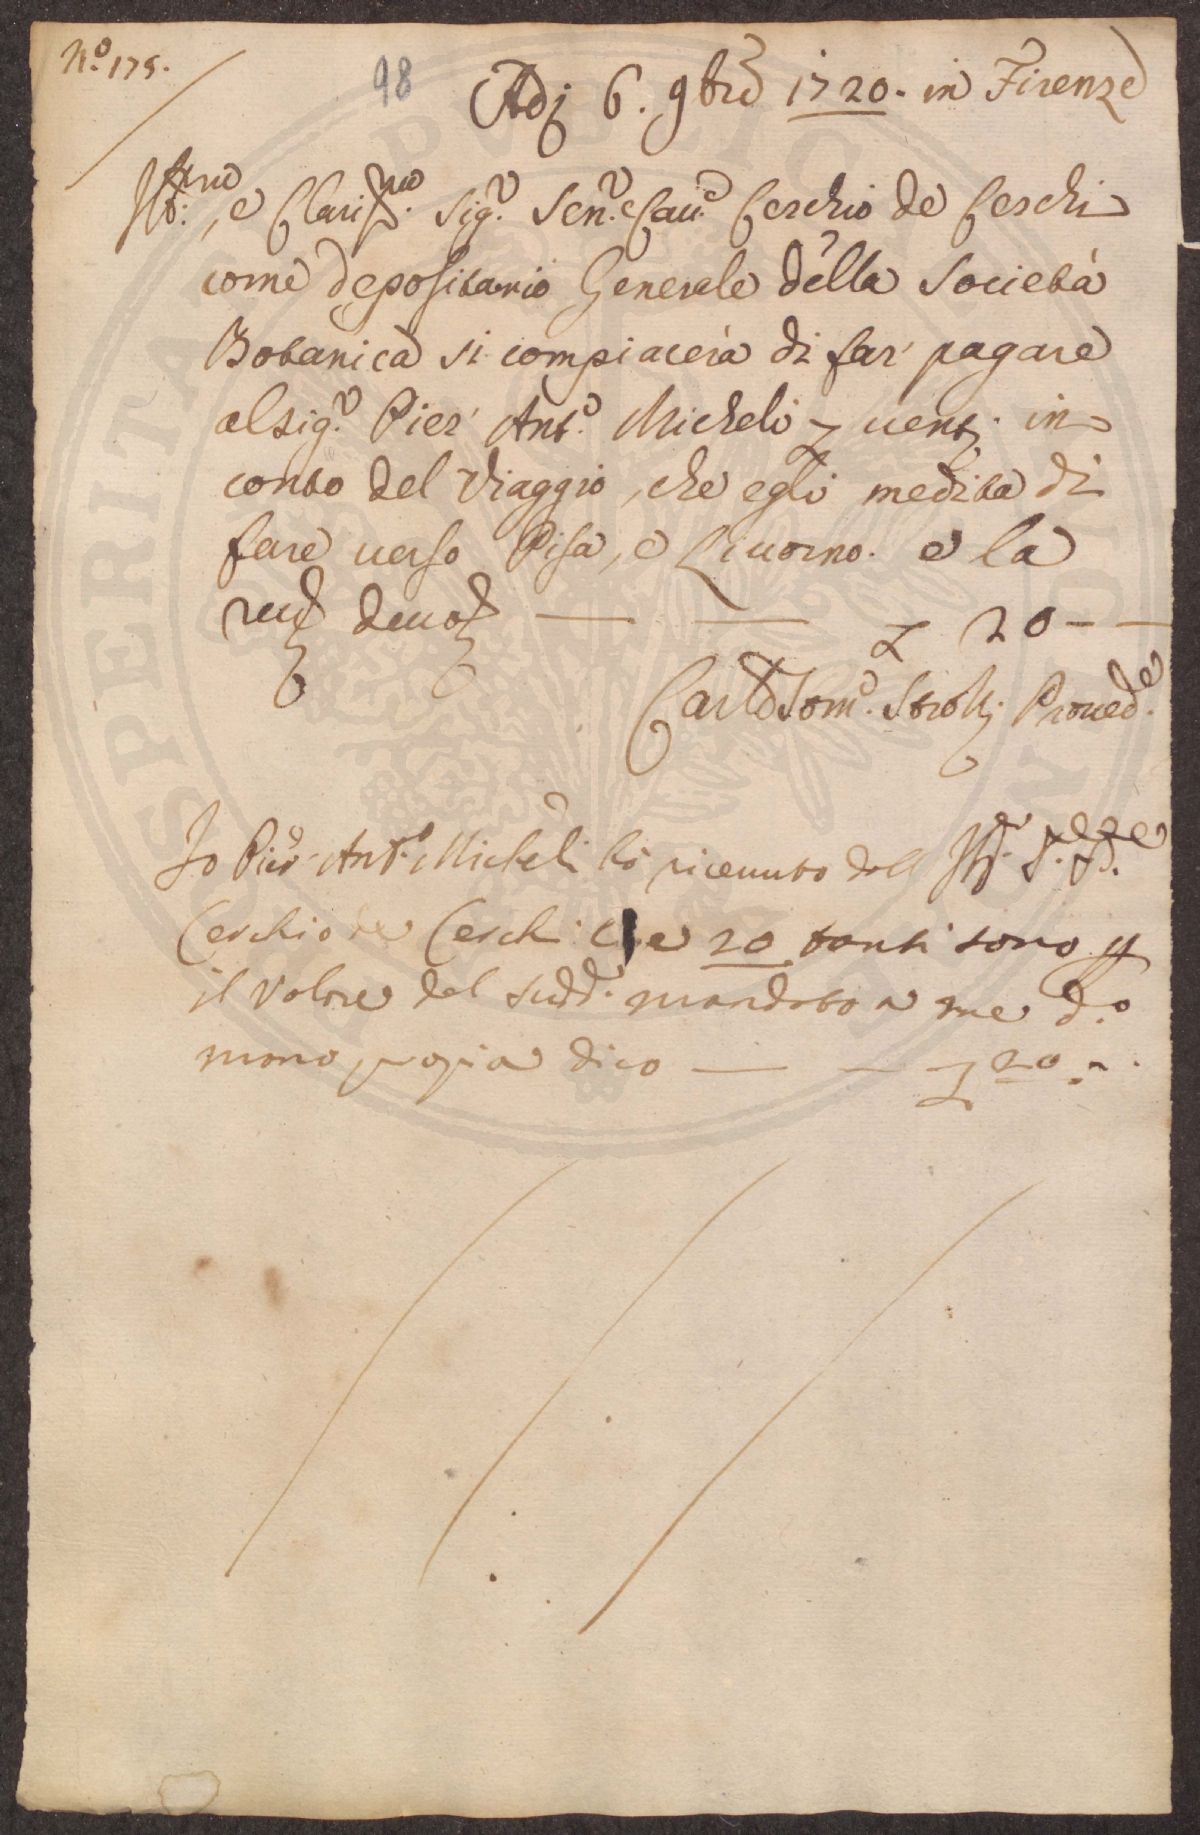 N.º 175.
98
Adj 6. 9bre 1720. in Firenze
Ill:mo, e Clariss.mo Sig.r Sen.r e Cau.e Cerchio de Cerchi
come depositario Generale della Società
Botanica si compiacerà di far pagare
al Sig.r Pier Ant.o Micheli venti in
conto del Viaggio, che egli medita di
fare verso Pisa, e Liuorno. e la
deuot
20 — —
Carlo Tom.o Strozzi Proued.e
Io Pier Ant.o Micheli ho riceuuto dall Ill.
Cerchio de Cerchi 20 tanti sono p
il valore del sudd.o mandato a me d.o
mano propia dico — — 20